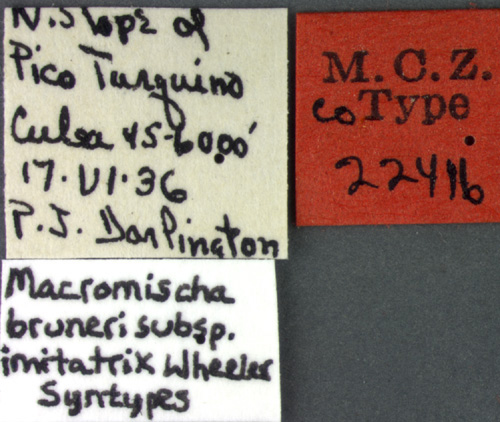 N. Slope of
Pico Turquino
Cuba 45-6000'
17.VI.36
P.J. Darlington
M.C.Z.
Co Type
22416
Macromischa
bruneri subsp.
imitatrix Wheeler
Syntypes